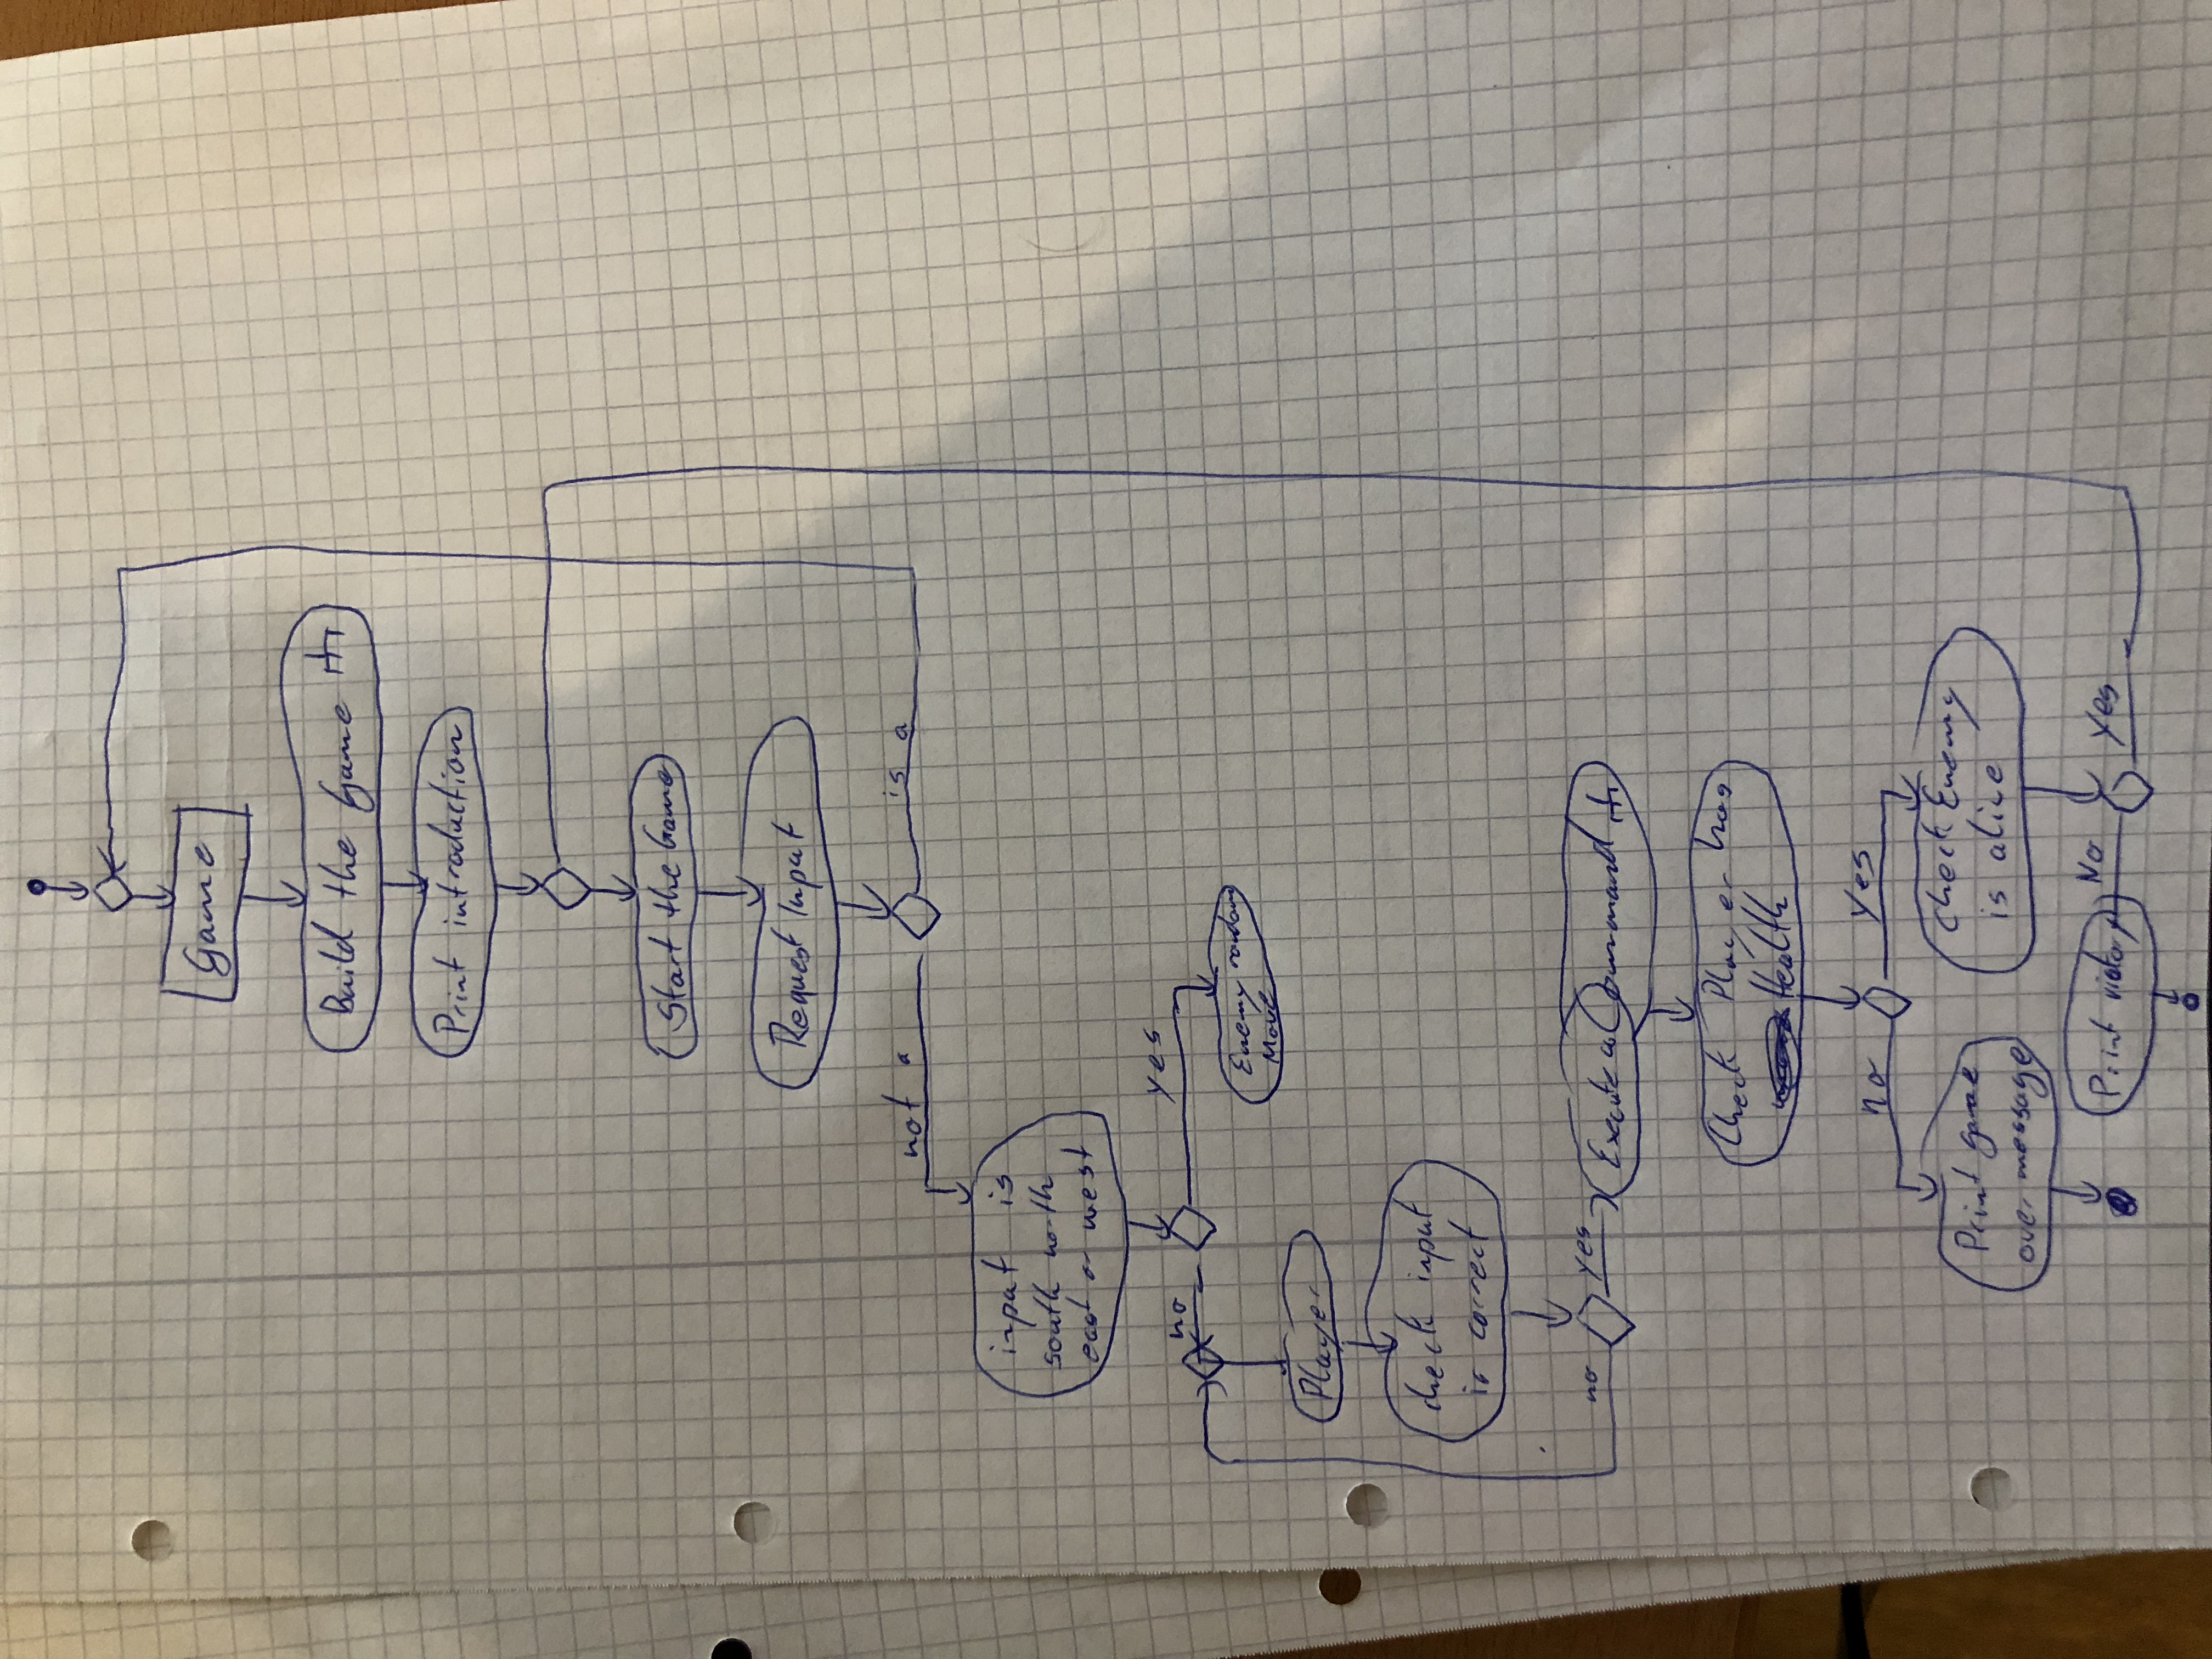 Game
Build the Game
Print introduction
Start the Game
Request Input
not a
is a
input is
south north
east or west
no
yes
Enemy random
Move
Player
check input
is correct
no
yes
Execute a Command
Check Player has
Health
no
yes
Print game
over message
check Enemy
is alive
Print victory
No
Yes